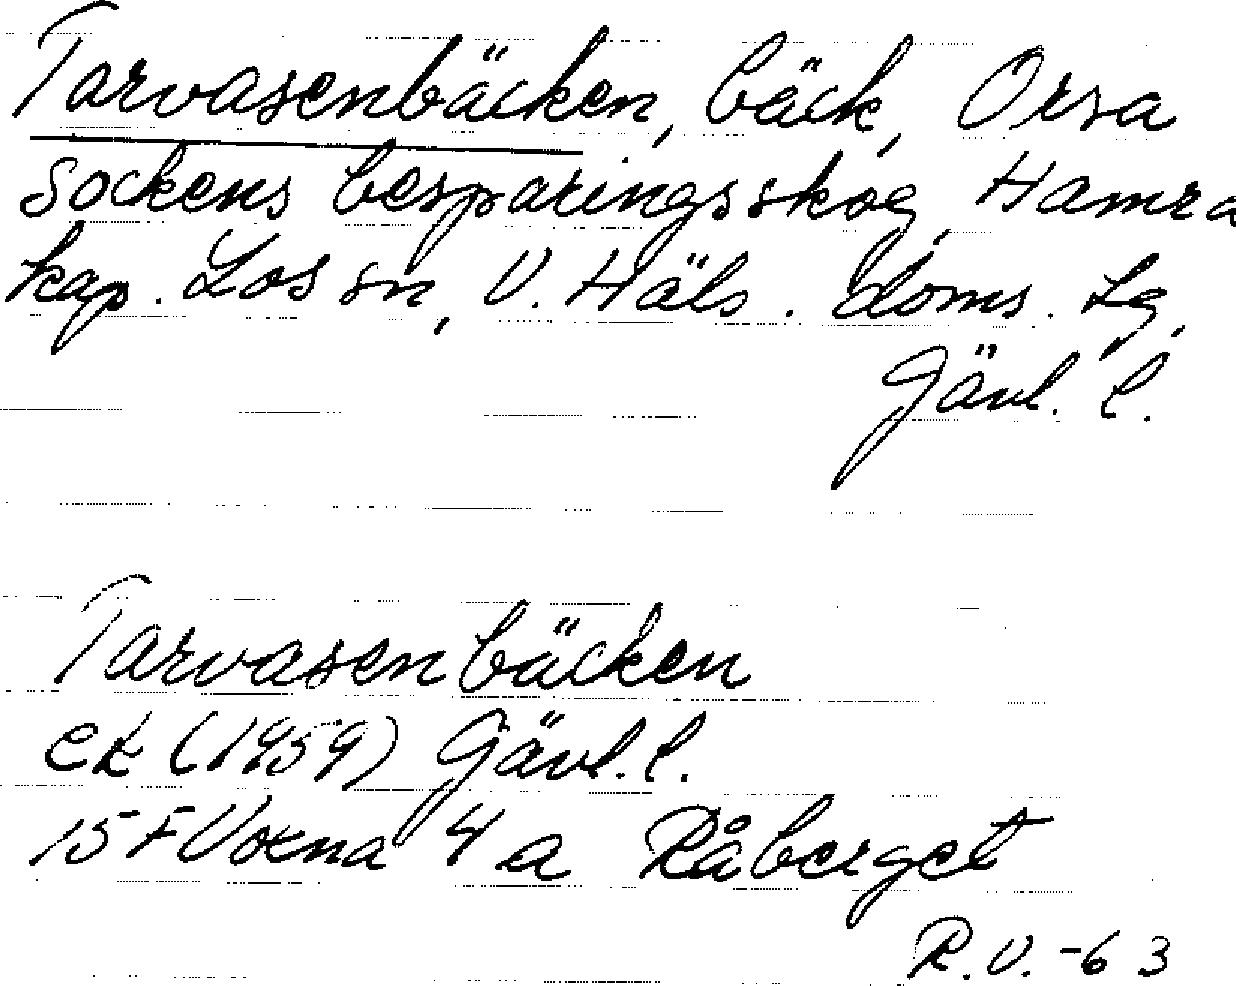 Tarvasenbäcken, bäck, Orsa
sockens besparingsskog, Hamra
kap. Los sn, V. Häls. doms. lg,
Gävl. l.
Tarvasenbäcken
ek (1959) Gävl. l.
15 F Voxna 4 a Råberget
R.V. -63